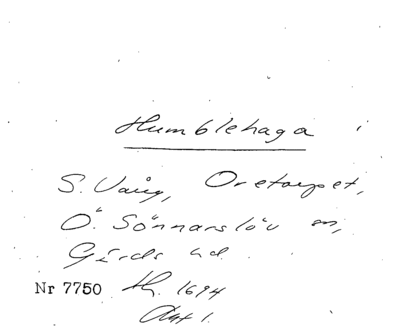 Humblehaga i
S. Vång, Oretorpet,
Ö. Sönnarslöv sn,
Gärds hd.
Nr 7750 1694
Akt 1.